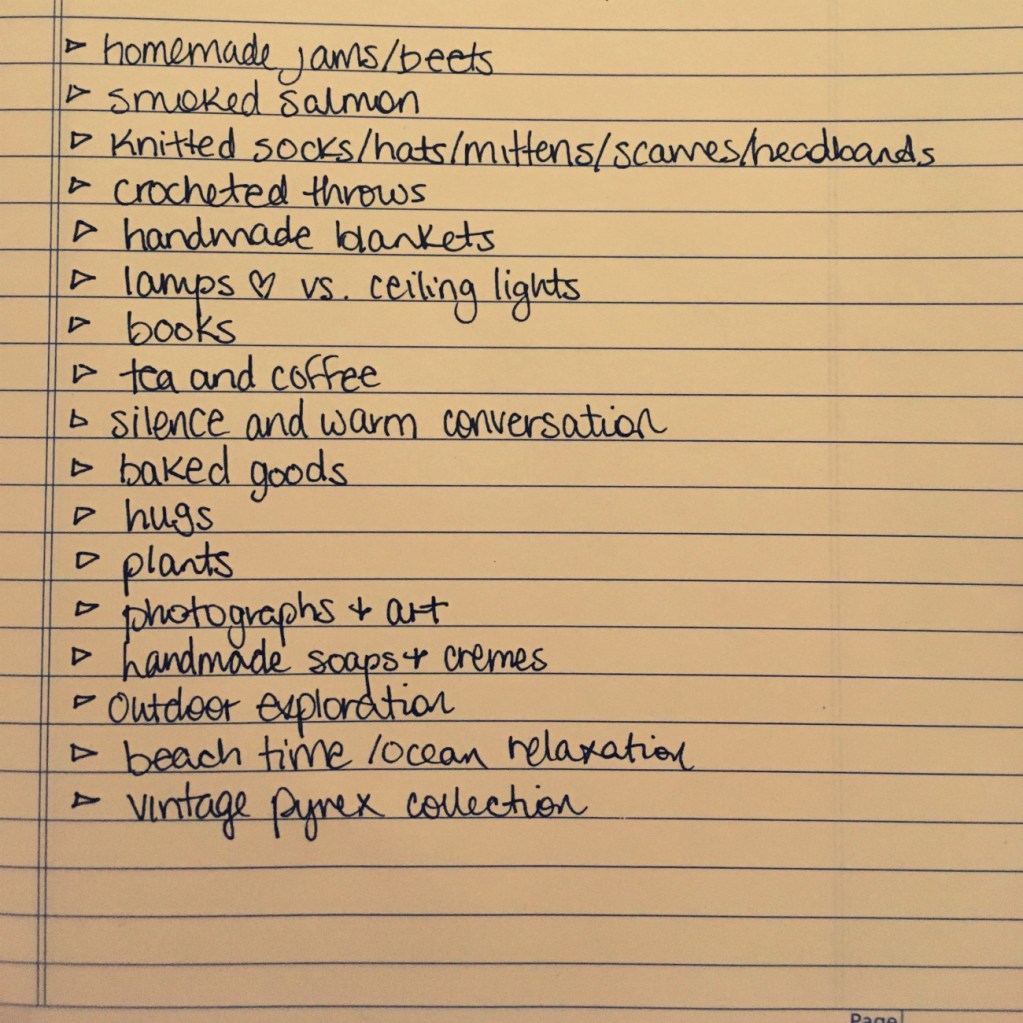 ▹ homemade jams/beets
▹ smoked salmon
▹ Knitted socks/hats/mittens/scarves/headbands
▹ crocheted throws
▹ handmade blankets
▹ lamps ♡ vs. ceiling lights
▹ books
▹ tea and coffee
▹ silence and warm conversation
▹ baked goods
▹ hugs
▹ plants
▹ photographs + art
▹ handmade soaps + cremes
▹ Outdoor exploration
▹ beach time /ocean relaxation
▹ vintage pyrex collection
Page